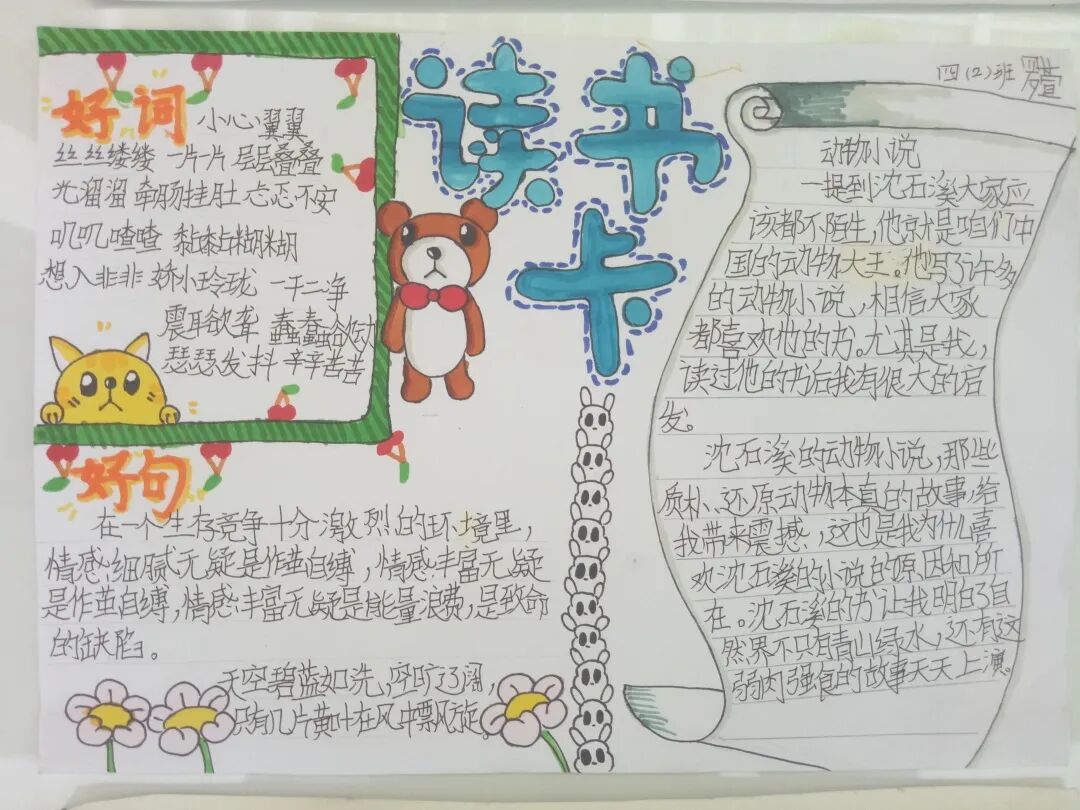 读书卡
四(2)班
好词 小心翼翼
丝丝缕缕 一片一片 层层叠叠
光溜溜 牵肠挂肚 忐忑不安
叽叽喳喳 黏黏糊糊
想入非非 娇小玲珑 一干二净
震耳欲聋 蠢蠢欲动
瑟瑟发抖 辛辛苦苦
好句
在一个生存竞争十分激烈的环境里,
情感细腻无疑是作茧自缚,情感丰富无疑
是作茧自缚,情感丰富无疑是能量浪费,是致命
的缺陷。
天空碧蓝如洗,空旷辽阔,
只有几片黄叶在风中飘旋。
动物小说
一提到沈石溪大家应
该都不陌生,他就是咱们中
国的动物大王。他写了许多
的动物小说,相信大家
都喜欢他的书。尤其是我,
读过他的书后我有很大的启
发。
沈石溪的动物小说,那些
质朴、还原动物本真的故事,给
我带来震撼,这也是我为什么喜
欢沈石溪的小说的原因和所
在。沈石溪的书让我明白了自
然界不只有青山绿水,还有这
弱肉强食的故事天天上演。